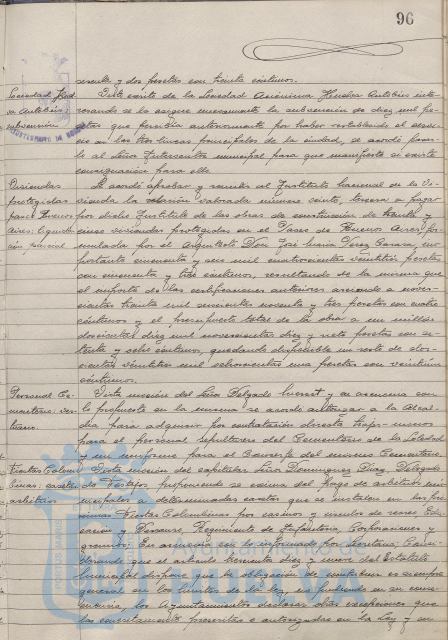 96
sesenta y dos pesetas con treinta céntimos.
Sociedad Vista escrito de la Sociedad Anónima Huelva Autobús inte-
Autobús; resando se la asigne nuevamente la subvención de diez mil pe-
subvención setas que percibía anteriormente por haber restablecido el servi-
cio en las tres líneas principales de la ciudad, se acordó pasar-
lo al Señor Interventor municipal para que manifieste si existe
consignación para ello.
Viviendas Se acordó aprobar y remitir al Instituto Nacional de la Vi-
protegidas vienda la relación valorada número siete, tercera a pagar
paseo Buenos por dicho Instituto de las obras de construcción de treinta y
Aires; liquida- cinco viviendas protegidas en el Paseo de Buenos Aires, for-
ción parcial mulada por el Arquitecto Don José María Pérez Carasa, im-
portante cincuenta y seis mil cuatrocientas veintitrés pesetas
con cincuenta y tres céntimos, resultando de la misma que
el importe de las certificaciones anteriores asciende a nove-
cientas treinta mil seiscientas noventa y tres pesetas con cuatro
céntimos y el presupuesto total de la obra a un millón
doscientas diez mil novecientas diez y siete pesetas con se-
tenta y ocho céntimos, quedando disponible un resto de dos-
cientas veintitrés mil ochocientas una pesetas con veintiún
céntimos.
Personal Ce- Vista moción del Señor Delgado y de acuerdo con
menterio; ves- lo propuesto en la misma se acordó autorizar a la Alcal-
tuario. día para adquirir por contratación directa trajes
para el personal sepulturero del Cementerio de la Soledad
y un uniforme para el Conserje del mismo Cementerio.
Fiestas Colom- Vista moción del capitular Señor Domínguez Díaz, Delegado
binas; de Festejos, proponiendo se exima del pago de arbitrios mu-
arbitrios nicipales a determinadas casetas que se instalen en las pró-
ximas Fiestas Colombinas por casinos y círculos de recreo, Edu-
cación y Descanso, Regimiento de Infantería, Corporaciones y
gremios; En armonía con lo informado por Secretaría; Consi-
derando que el artículo trescientos diez y nueve del Estatuto
municipal dispone que la obligación de contribuir es siempre
general en los límites de la ley, no pudiendo en su conse-
cuencia, los Ayuntamientos declarar otras excepciones que
las concretamente previstas o autorizadas en la Ley y en
Ayuntamiento de